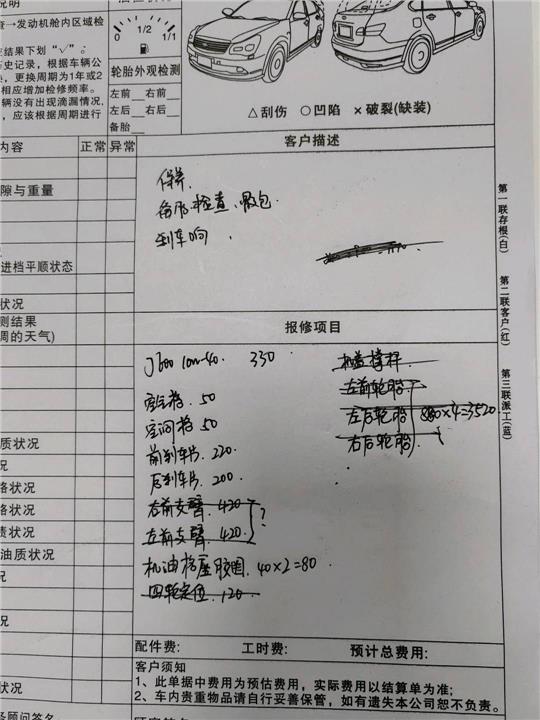 查→发动机舱内区域检
1/2
0 1/1
应结果下划“√”。
历史记录，根据车辆公
更换周期为1年或2
相应增加检修频率。
辆没有出现滴漏情况，
，应该根据周期进行
轮胎外观检测
左前 右前
左后 右后
备胎
△刮伤 ○凹陷 ×破裂(缺装)
内容 正常 异常
客户描述
保养
检查
刹车响
隙与重量
进档平顺状态
状况
测结果
周的天气)
第一联存根(白)
第二联客户(红)
第三联派工(蓝)
报修项目
10w-40. 330
空气格. 50
空调格 50
前刹车片. 220
后刹车片. 200
右前支臂. 420
左前支臂. 420
?
机油格座胶圈. 40×2=80
四轮定位. 120
机盖撑杆
左前轮胎
左后轮胎 880×4=3520
右后轮胎
质状况
况
格状况
格状况
责状况
油质状况
状况
配件费: 工时费: 预计总费用:
客户须知
1、此单据中费用为预估费用，实际费用以结算单为准;
2、车内贵重物品请自行妥善保管，如有遗失本公司恕不负责。
顾问签名